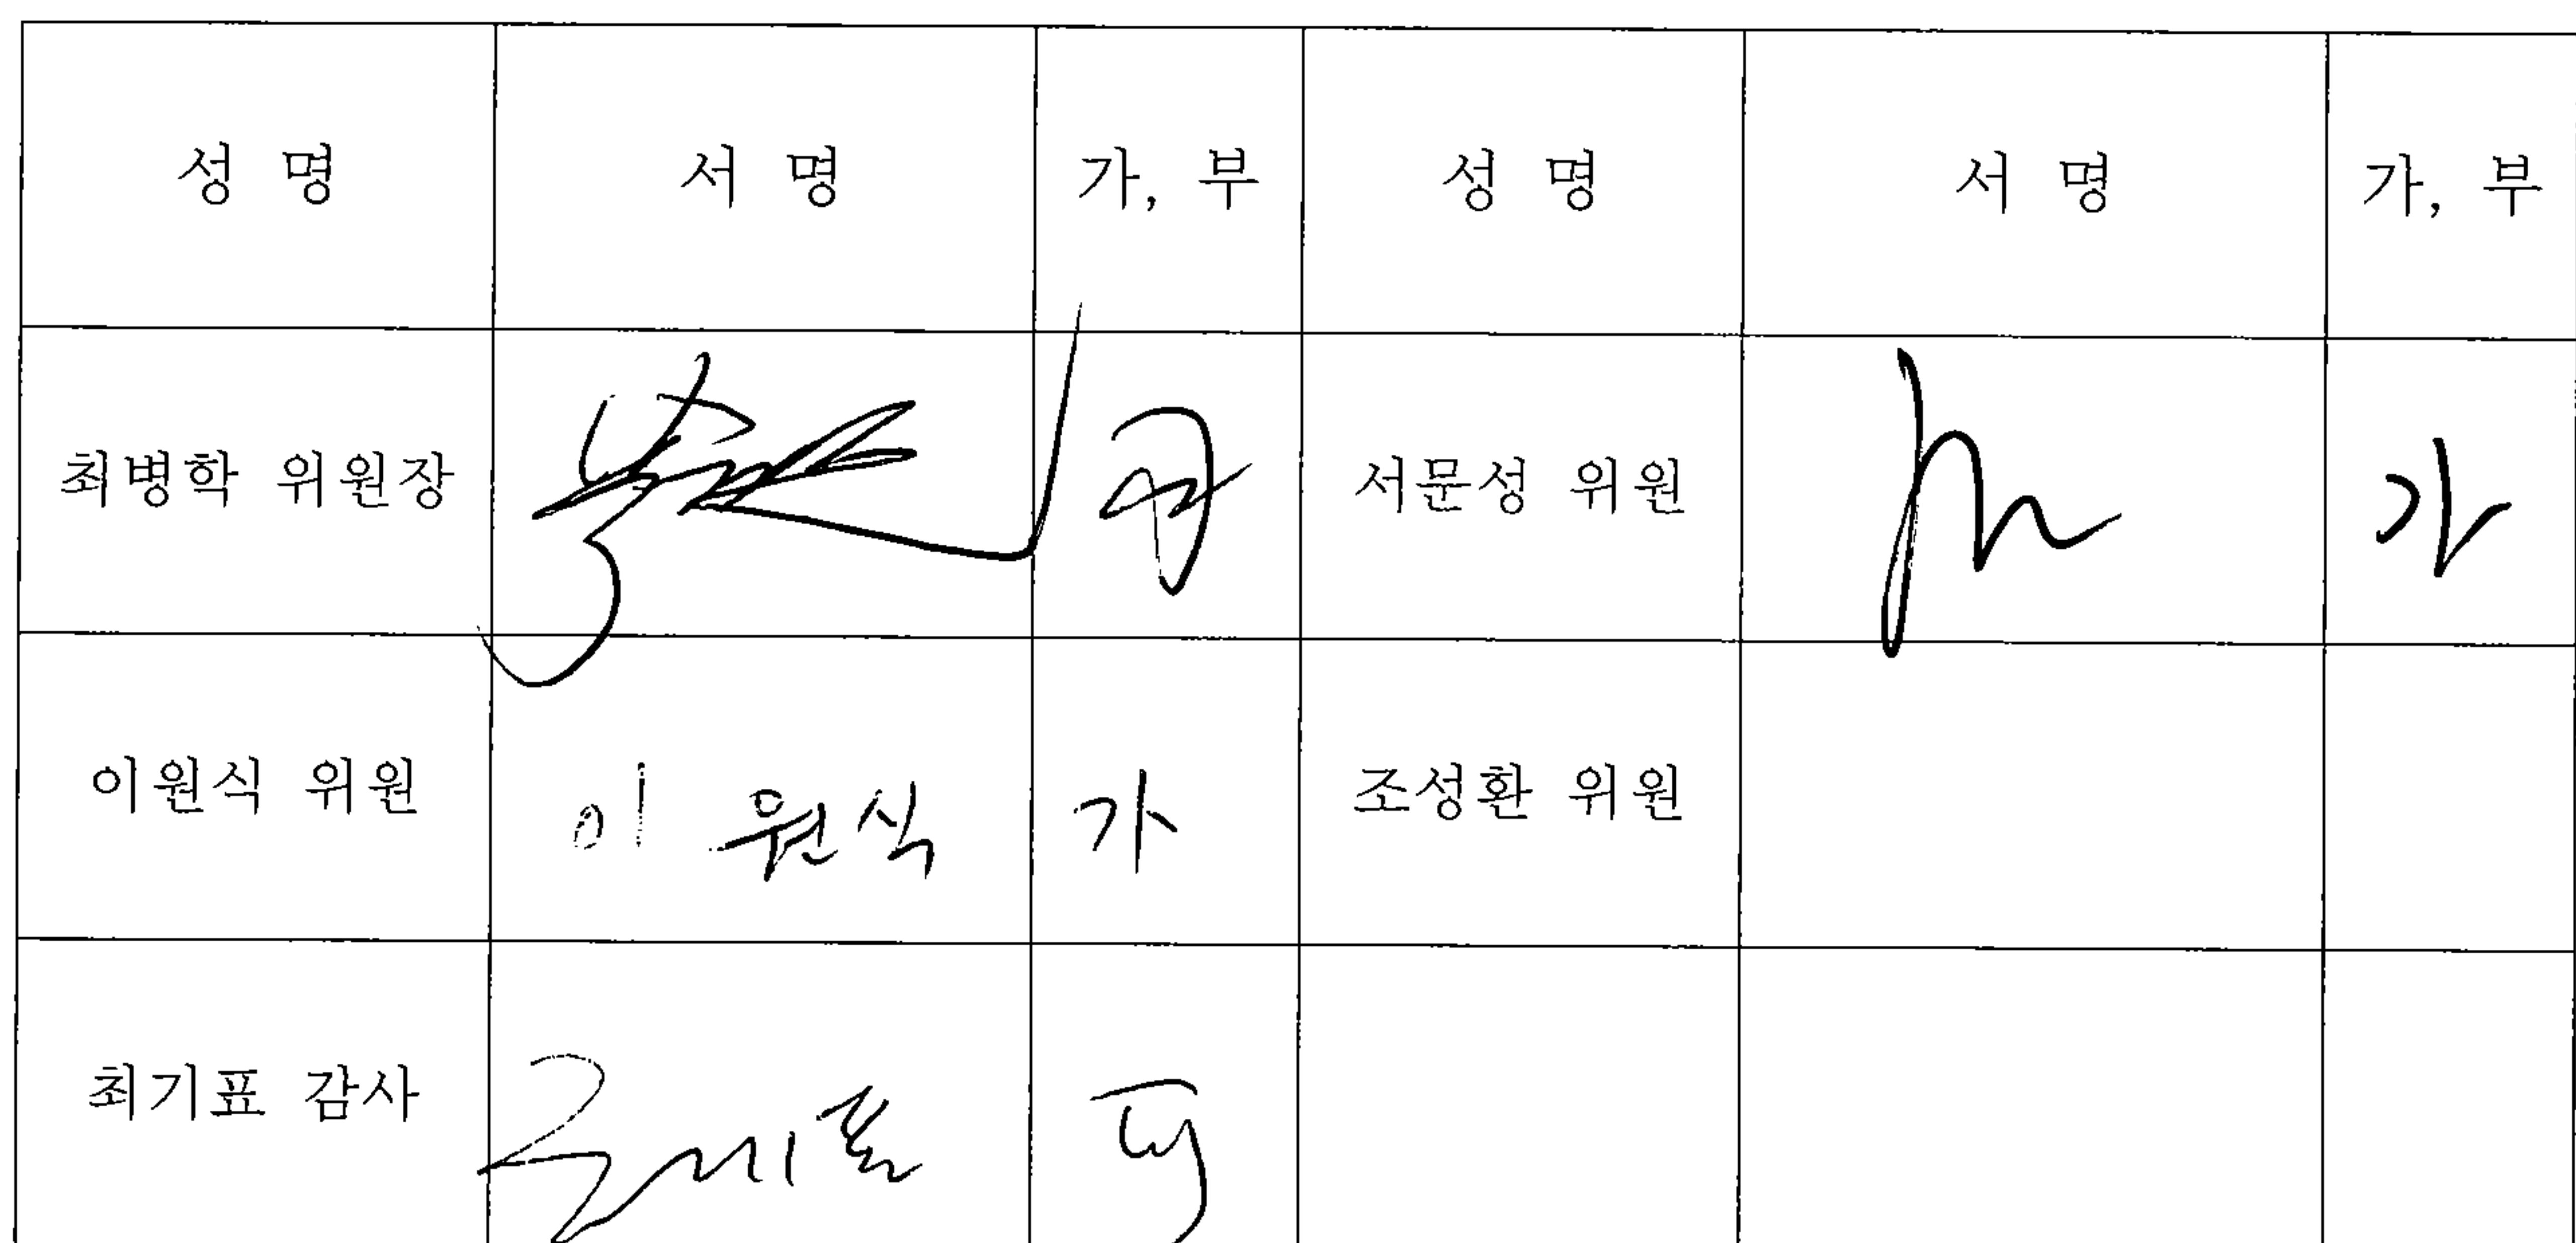 성 명 서 명 가, 부 성 명 서 명 가, 부
최병학 위원장 서문성 위원 가
이원식 위원 이원식 가 조성환 위원
최기표 감사 최기표 可